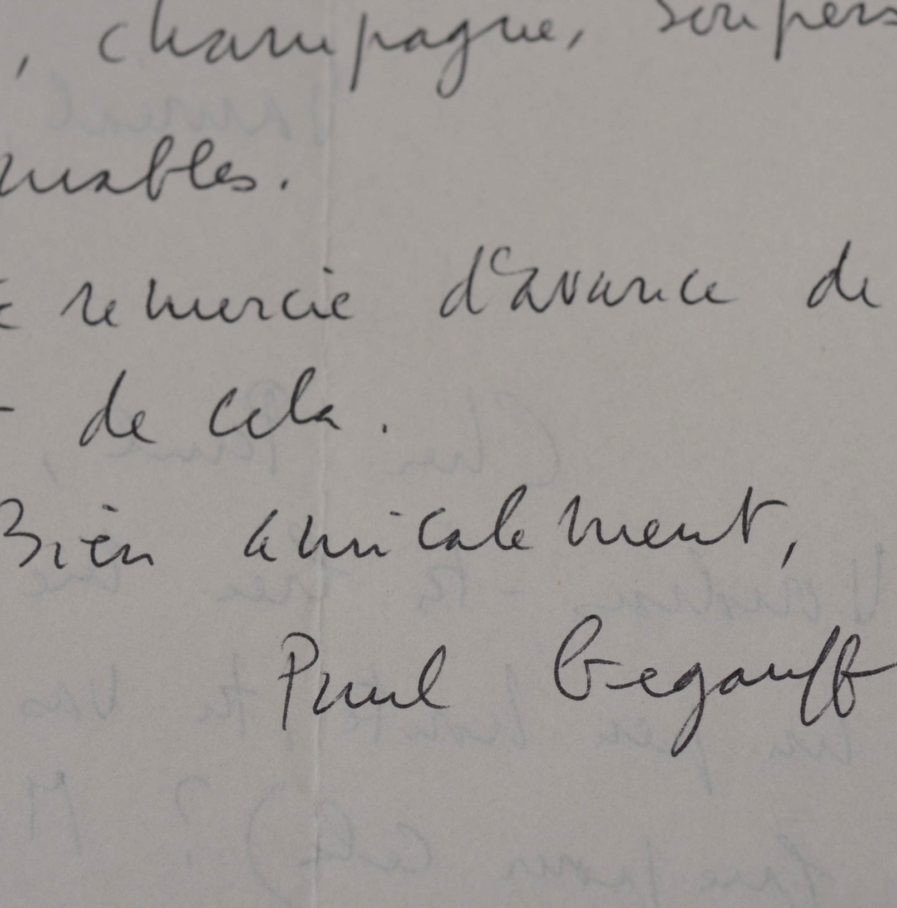 , champagne, soupers
uables.
remercie d'avance de
de cela.
Bien amicalement,
Paul Gegauff